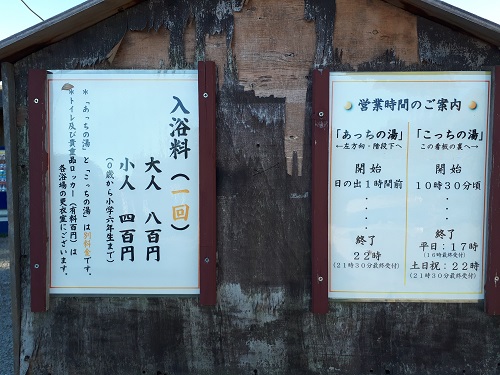 入浴料（一回）
大人　八百円
小人　四百円
（0歳から小学六年生まで）
＊「あっちの湯」と「こっちの湯」は別料金です。
＊トイレ及び貴重品ロッカー（有料百円）は
各浴場の更衣室にございます。
営業時間のご案内
「あっちの湯」
←左方向・階段下へ
開始
日の出1時間前
・
・
・
・
終了
22時
(21時30分最終受付)
「こっちの湯」
この看板の裏へ→
開始
10時30分頃
・
・
・
・
終了
平日：17時
(16時最終受付)
土日祝：22時
(21時30分最終受付)